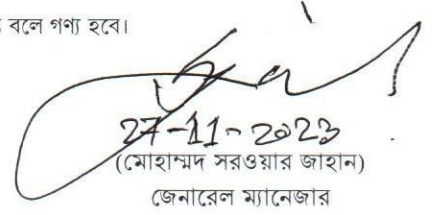 বলে গণ্য হবে।
27-11-2023
(মোহাম্মদ সরওয়ার জাহান)
জেনারেল ম্যানেজার